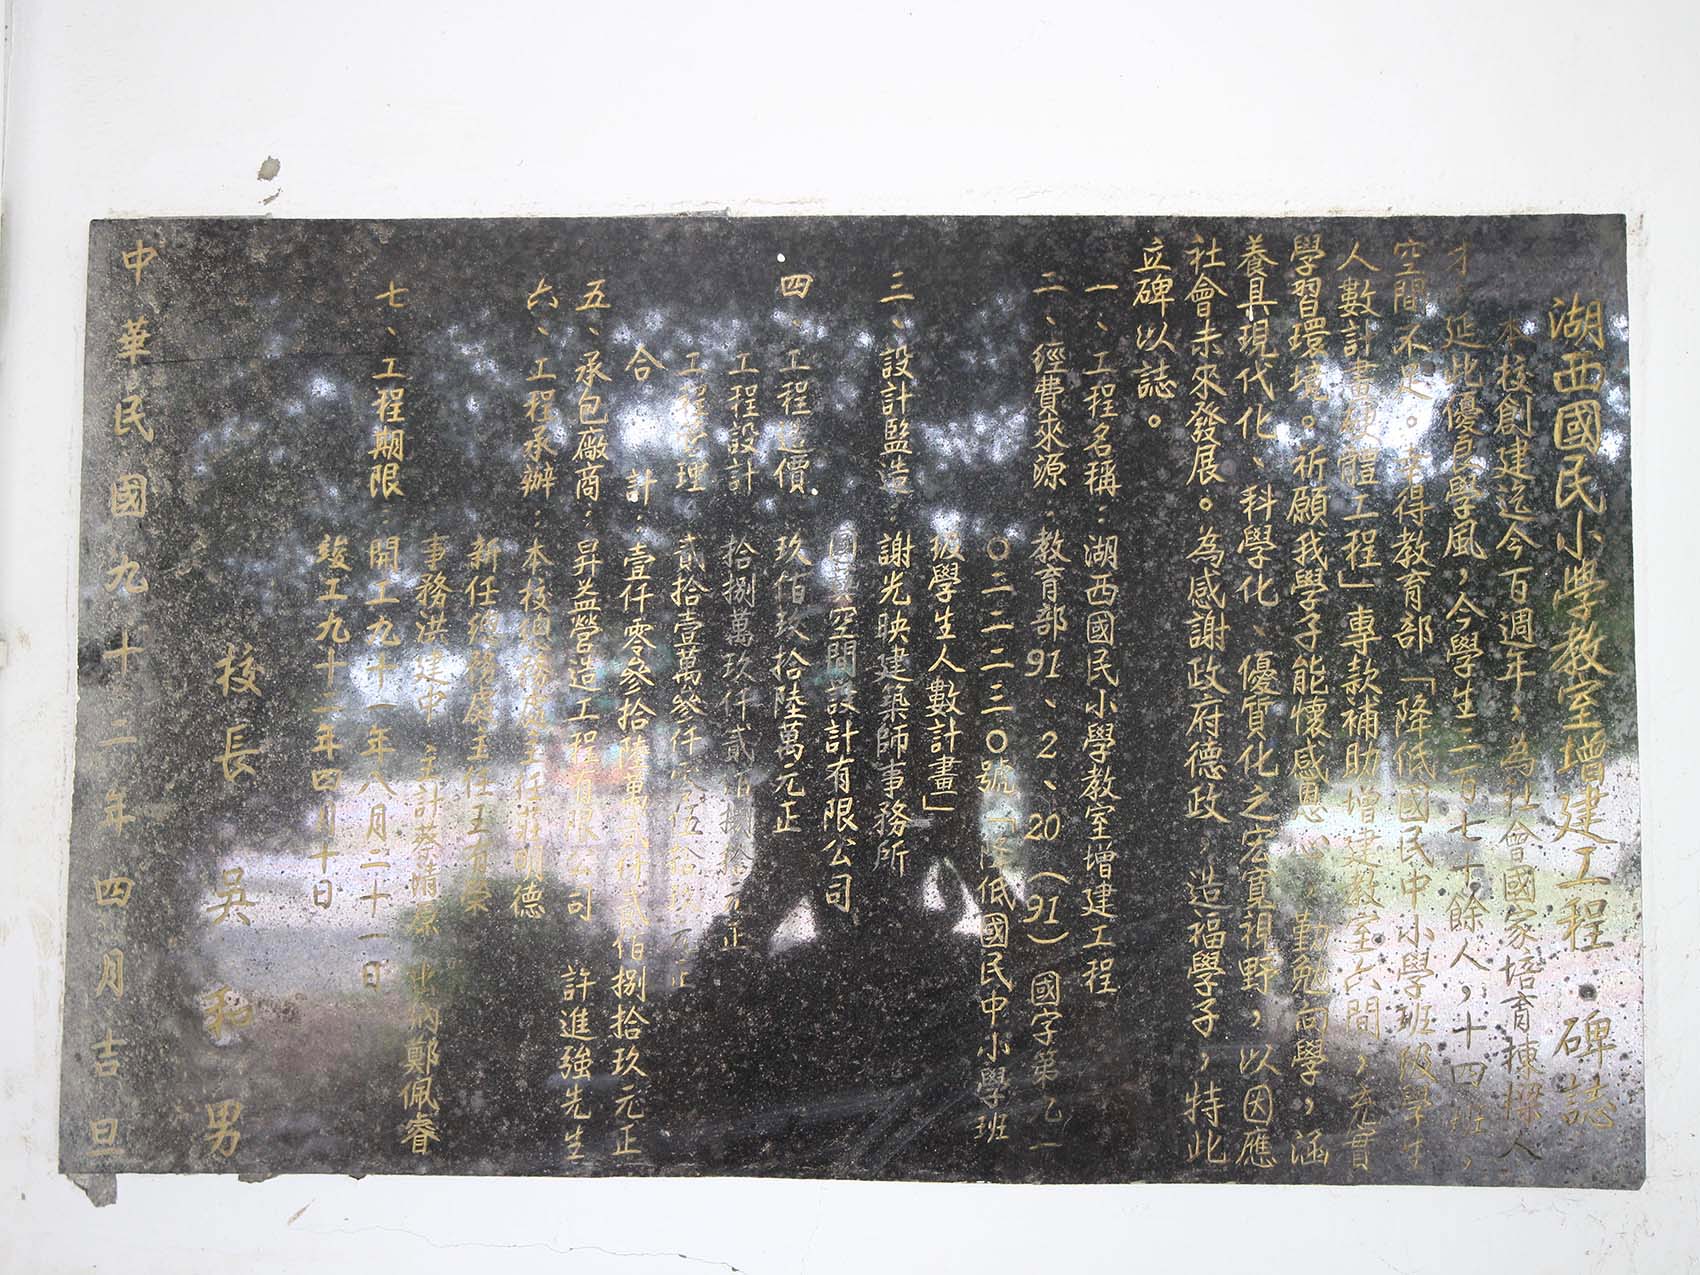 湖西國民小學教室增建工程 碑誌
本校創建迄今百週年，為社會國家培育棟樑人
才，延此優良學風，今學生二百七十餘人，十四班，
空間不足。幸得教育部「降低國民中小學班級學生
人數計畫硬體工程」專款補助增建教室六間，充實
學習環境。祈願我學子能懷感恩心，勤勉向學，涵
養具現代化、科學化、優質化之宏寬視野，以因應
社會未來發展。為感謝政府德政，造福學子，特此
立碑以誌。
一、工程名稱：湖西國民小學教室增建工程
二、經費來源：教育部91、2、20（91）國字第乙一
〇二二二三〇號「降低國民中小學班
級學生人數計畫」
三、設計監造：謝光映建築師事務所
國英空間設計有限公司
四、工程造價 玖佰玖拾陸萬元正
工程設計 拾捌萬玖仟貳佰捌拾元正
工程管理 貳拾壹萬參仟零伍拾玖元正
合 計：壹仟零參拾陸萬貳仟貳佰捌拾玖元正
五、承包廠商：昇益營造工程有限公司 許進強先生
六、工程承辦：本校總務處主任莊明德
新任總務處主任王有榮
事務洪建中 主計蔡靖原 出納鄭佩睿
七、工程期限：開工九十一年八月二十一日
竣工九十二年四月十日
校長 吳和男
中華民國九十二年四月吉旦